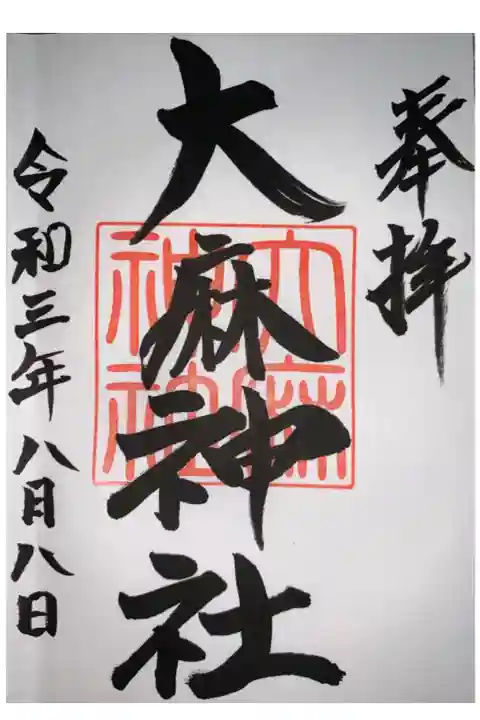 奉拝
大麻神社
大麻神社
令和三年八月八日